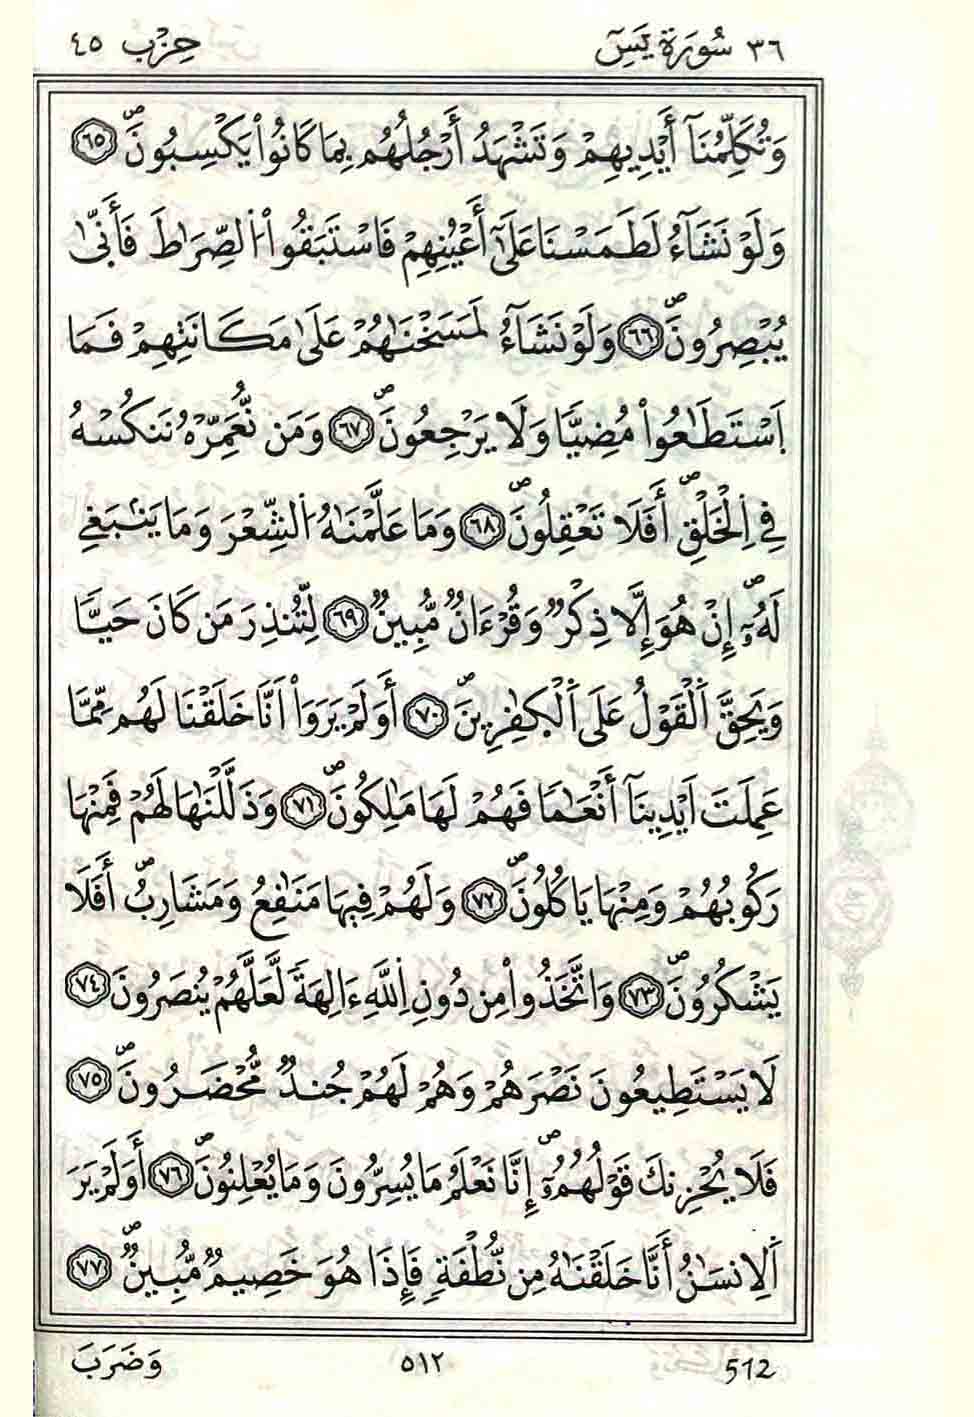 ٣٦ سُورَةُ يَسِٓ حِزْب ٤٥
وَتُكَلِّمُنَآ أَيْدِيهِمْ وَتَشْهَدُ أَرْجُلُهُم بِمَا كَانُواْ يَكْسِبُونَۖ ٦٥
وَلَوْ نَشَآءُ لَطَمَسْنَا عَلَىٰٓ أَعْيُنِهِمْ فَاسْتَبَقُواْ اُ۬لصِّرَٰطَ فَأَنّ۪ىٰ
يُبْصِرُونَۖ ٦٦ وَلَوْ نَشَآءُ لَمَسَخْنَٰهُمْ عَلَىٰ مَكَانَتِهِمْ فَمَا
اَ۪سْتَطَٰعُواْ مُضِيّاٗ وَلَا يَرْجِعُونَۖ ٦٧ وَمَن نُّعَمِّرْهُ نَنكُسْهُ
فِے اِ۬لْخَلْقِۖ أَفَلَا تَعْقِلُونَۖ ٦٨ وَمَا عَلَّمْنَٰهُ اُ۬لشِّعْرَ وَمَا يَنۢبَغِے
لَهُۥٓۖ إِنْ هُوَ إِلَّا ذِكْرٞ وَقُرْءَانٞ مُّبِينٞ ٦٩ لِّتُنذِرَ مَن كَانَ حَيّاٗ
وَيَحِقَّ اَ۬لْقَوْلُ عَلَى اَ۬لْكٰ۪فِرِينَۖ ٧٠ أَوَلَمْ يَرَوَاْ اَنَّا خَلَقْنَا لَهُم مِّمَّا
عَمِلَتَ اَيْدِينَآ أَنْعَٰماٗ فَهُمْ لَهَا مَٰلِكُونَۖ ٧١ وَذَلَّلْنَٰهَا لَهُمْ فَمِنْهَا
رَكُوبُهُمْ وَمِنْهَا يَاكُلُونَۖ ٧٢ وَلَهُمْ فِيهَا مَنَٰفِعُ وَمَشَارِبُۖ أَفَلَا
يَشْكُرُونَۖ ٧٣ وَاتَّخَذُواْ مِن دُونِ اِ۬للَّهِ ءَالِهَةٗ لَّعَلَّهُمْ يُنصَرُونَ ٧٤
لَا يَسْتَطِيعُونَ نَصْرَهُمْ وَهُمْ لَهُمْ جُندٞ مُّحْضَرُونَۖ ٧٥
فَلَا يُحْزِنكَ قَوْلُهُمُۥٓۖ إِنَّا نَعْلَمُ مَا يُسِرُّونَ وَمَا يُعْلِنُونَۖ ٧٦ أَوَلَمْ يَرَ
اَ۬لِانسَٰنُ أَنَّا خَلَقْنَٰهُ مِن نُّطْفَةٖ فَإِذَا هُوَ خَصِيمٞ مُّبِينٞۖ ٧٧
512 ٥١٢ وَضَرَبَ